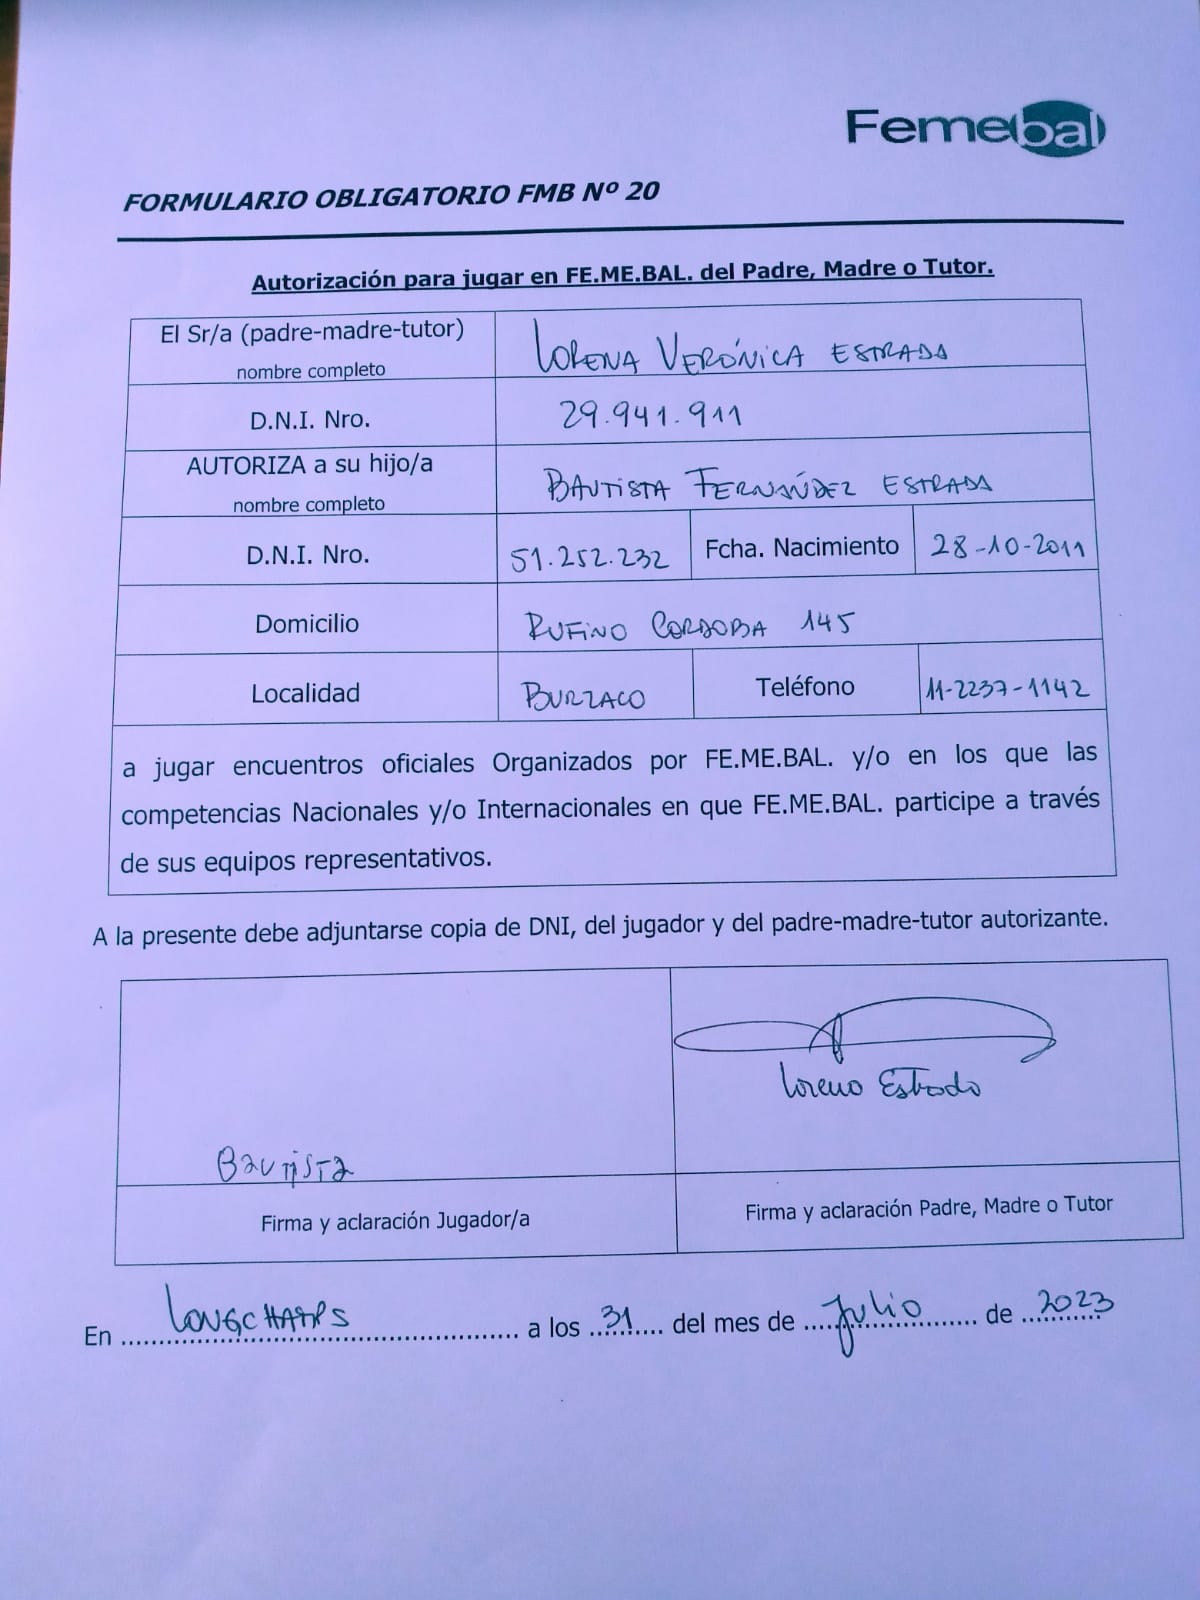 Femebal
FORMULARIO OBLIGATORIO FMB Nº 20
Autorización para jugar en FE.ME.BAL. del Padre, Madre o Tutor.
El Sr/a (padre-madre-tutor)
nombre completo
LORENA VERÓNICA ESTRADA
D.N.I. Nro.
29.941.911
AUTORIZA a su hijo/a
nombre completo
BAUTISTA FERNÁNDEZ ESTRADA
D.N.I. Nro.
51.252.232
Fcha. Nacimiento
28-10-2011
Domicilio
RUFINO CORDOBA 145
Localidad
BURZACO
Teléfono
11-2237-1142
a jugar encuentros oficiales Organizados por FE.ME.BAL. y/o en los que las
competencias Nacionales y/o Internacionales en que FE.ME.BAL. participe a través
de sus equipos representativos.
A la presente debe adjuntarse copia de DNI, del jugador y del padre-madre-tutor autorizante.
Lorena Estrada
Bautista
Firma y aclaración Jugador/a
Firma y aclaración Padre, Madre o Tutor
En LONGCHAMPS a los 31 del mes de Julio de 2023